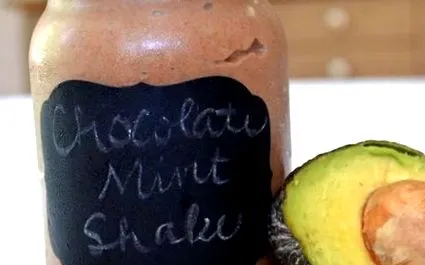 Chocolate
Mint
Shake